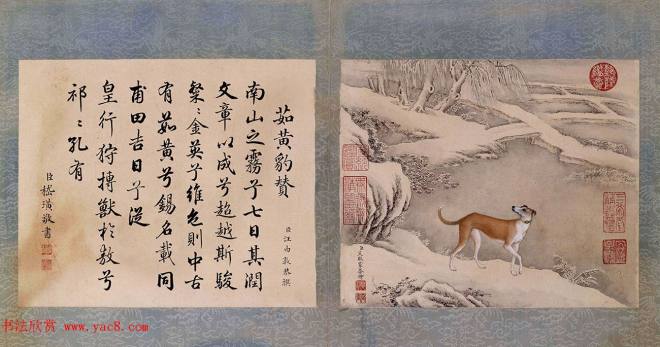 茹黃豹贊
臣汪由敦恭撰
南山之霧兮七日其潤
文章以成兮超越斯駿
粲〻金英兮維色則中古
有茹黃兮錫名載同
甫田吉日兮從
皇行狩搏獸於敖兮
祁〻孔有
臣嵇璜敬書
臣艾啟蒙恭繪
书法欣赏 www.yac8.com